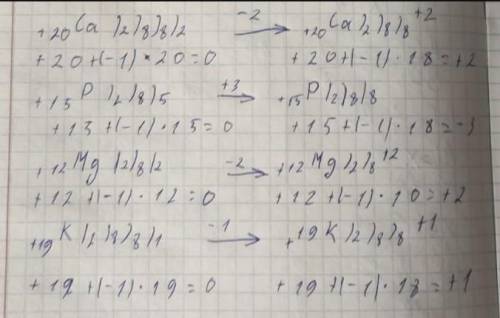 +20 Ca )2)8)8)2 -2 → +20 Ca )2)8)8 +2
+20+(-1)*20=0 +20+(-1)·18=+2
+15 P )2)8)5 +3 → +15 P )2)8)8
+15+(-1)·15=0 +15+(-1)·18=-3
+12 Mg )2)8)2 -2 → +12 Mg )2)8 +2
+12+(-1)·12=0 +12+(-1)·10=+2
+19 K )2)8)8)1 -1 → +19 K )2)8)8 +1
+19+(-1)·19=0 +19+(-1)·18=+1